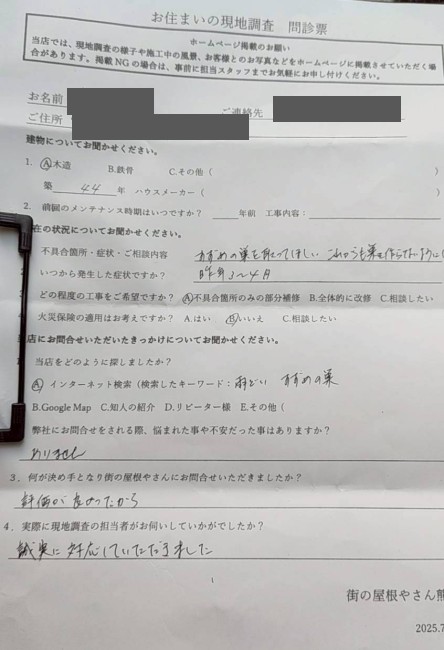 お住まいの現地調査 問診票
ホームページ掲載のお願い
当店では、現地調査の様子や施工中の風景、お客様とのお写真などをホームページに掲載させていただく場
合があります。掲載NGの場合は、事前に担当スタッフまでお気軽にお申し付けください。
お名前 ご連絡先
ご住所
建物についてお聞かせください。
1. A.木造 B.鉄骨 C.その他( )
築 44 年 ハウスメーカー(
2. 前回のメンテナンス時期はいつですか? 年前 工事内容:
在の状況についてお聞かせください。
不具合箇所・症状・ご相談内容 すずめの巣を取ってほしい これからも巣を作らないように
いつから発生した症状ですか? 昨年3〜4月
どの程度の工事をご希望ですか? A.不具合箇所のみの部分補修 B.全体的に改修 C.相談したい
4 火災保険の適用はお考えですか? A.はい B.いいえ C.相談したい
店にお問合せいただいたきっかけについてお聞かせください。
当店をどのように探しましたか?
A. インターネット検索(検索したキーワード:雨どい すずめの巣
B.Google Map C.知人の紹介 D.リピーター様 E.その他(
弊社にお問合せをされる際、悩まれた事や不安だった事はありますか?
ありません
3. 何が決め手となり街の屋根やさんにお問合せいただきましたか?
評価が良かったから
4. 実際に現地調査の担当者がお伺いしていかがでしたか?
誠実に対応していただきました
1
街の屋根やさん熊
2025.7